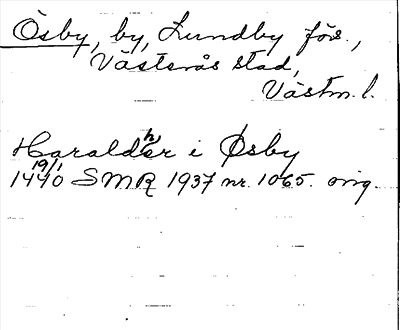 Ösby, by, Lundby förs.,
Västerås stad,
Västm. l.
Haraldher i Øsby
19/1
1440 SMR 1937 nr. 1065. orig.